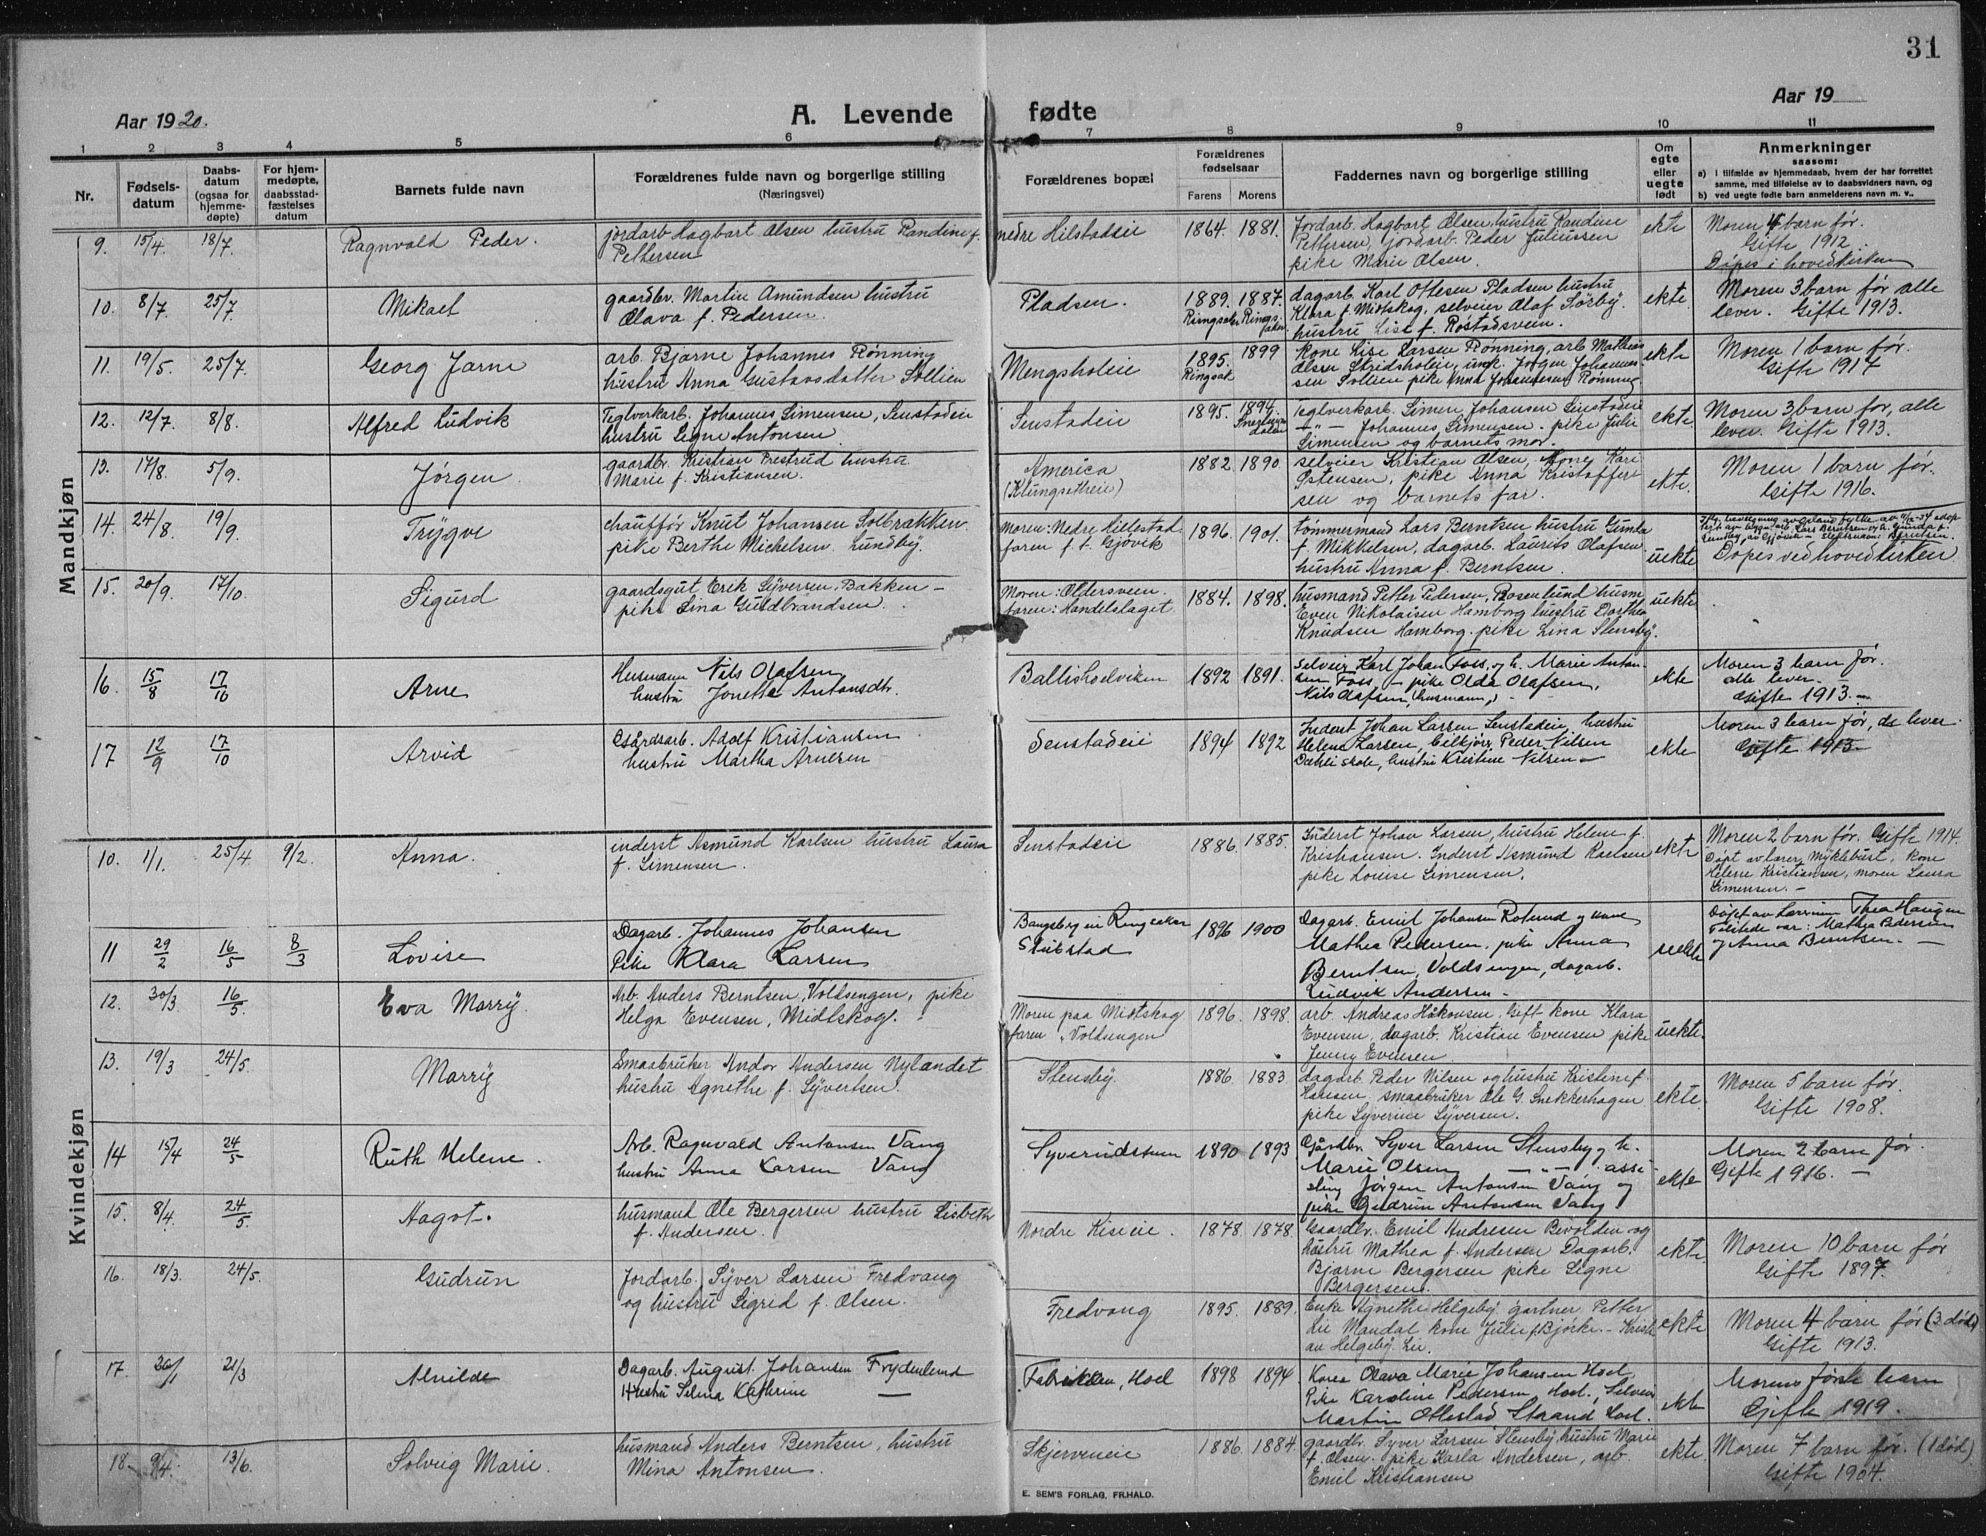 31
Aar 1920.
A. Levende fødte
Aar 19
1 2 3 4 5 6 7 8 9 10 11
Nr.
Fødsels-
datum
Daabs-
datum
(ogsaa for
hjemme-
døpte)
For hjem-
medøpte,
daabsstad-
fæstelses
datum
Barnets fulde navn
Forældrenes fulde navn og borgerlige stilling
(Næringsvei)
Forældrenes bopæl
Forældrenes
fødselsaar
Farens Morens
Faddernes navn og borgerlige stilling
Om
egte
eller
uegte
født
Anmerkninger
saasom:
a) i tilfælde av hjemmedaab, hvem der har forrettet
samme, med tilføielse av to daabsvidners navn, og
b) ved uegte fødte barn anmelderens navn m. v.,
Mandkjøn
9. 15/4. 18/7. Ragnvald Peder.
jordarb Hagbart Olsen hustru Randine f.
Pettersen
nedre Hilstadeie 1864. 1881.
Jordarb. Hagbart Olsen, hustru Randine
Pettersen, jordarb. Peder Juliussen
pike Marie Olsen.
ekte
Moren 4 barn før.
Gifte 1912.
Døpes i hovedkirken
10. 8/7. 25/7 Mikael
gaardbr. Martin Amundsen hustru
Olava f. Pedersen.
Pladsen. 1889. 1887.
Ringsaker Ringsaker
dagarb. Karl Ottesen Pladsen hustru
Klara f. Midtskog, selveier Olaf Sørby.
hustru Lise f. Rostadsveen.
ekte
Moren 3 barn før alle
lever. Gifte 1913.
11. 19/5. 25/7 Georg Jarne
arb. Bjarne Johannes Rønning
hustru Anna Gustavsdatter Sollien
Mengsholeie 1895. 1899
Ringsak
kone Lise Larsen Rønning, arb Mathias
Olsen Stridsholeie, unk. Jørgen Johannes-
sen Sollien pike Anna Johannesen Rønning
ekte
Moren 1 barn før.
Gifte 1917
12. 12/7. 8/8. Alfred Ludvik
Teglverkarb. Johannes Simensen, Senstadeie
hustru Signe Antonsen.
Senstadeie 1895. 1894.
Teglverkarb. Simen Johansen Senstadeie
—„— Johannes Simensen. pike Juli
Simensen og barnets mor.
ekte
Moren 3 barn før, alle
lever. Gifte 1913.
13. 17/8. 5/9. Jørgen
gaardbr. Kristian Prestrud hustru
Marie f. Kristiansen.
America
(Klungsetheie)
1882 1890
selveier Kristian Olsen, kone Kari
Østensen, pike Anna Kristoffer
sen og barnets far.
ekte.
Moren 1 barn før.
Gifte 1916.
14. 24/8. 19/9. Trygve
chauffør Knut Johansen Solbrækken
pike Berthe Michelsen. Lundby.
Moren: Nedre
faren f. t. Gjøvik
1896. 1901.
tømmermand Lars Berntsen hustru Gunda
f. Mikkelsen, dagarb. Laurits Olafsen.
hustru Anna f. Berntsen.
uekte
Døpes ved hovedkirken
15. 20/9. 17/10. Sigurd
gaardsgut Erik Syversen, Bakken —
pike Lina Guldbrandsen.
Moren: Oldersveen.
faren: Handelslaget.
1884. 1898.
husmand Petter Pedersen, Rosenlund husm
Even Nikolaisen Hamborg hustru Dorthea
Knudsen Hamborg. pike Lina Stensby.
uekte
16. 15/8 17/10 Arne
Husmann Nils Olafsen
hustru Jonette Antonsdtr.
Ballisholviken 1892 1891.
Selveier Karl Johan Foss, og h. Marie Anton-
sen Foss, — pike Olda Olafsen,
Nils Olafsen, (husmann) —
ekte
Moren 3 barn før.
alle lever. —
Gifte 1913. —
17 12/9 17/10 Arvid
Gårdsarb. Adolf Kristiansen
hustru Martha Arnesen
Senstadeie 1894 1892
Inderst Johan Larsen Senstadeie, hustru
Helene Larsen, Peder Nilsen
Dæhli skole, hustru Kristine Nilsen —
ekte
Moren 3 barn før, de lever
Gifte 1913 —
Kvindekjøn
10. 1/1. 25/4 9/2. Anna.
inderst Asmund Karlsen hustru Laura
f. Simensen.
Senstadeie 1886. 1885.
Inderst Johan Larsen, hustru Helene f.
Kristiansen. Inderst Asmund Karlsen
pike Louise Simensen.
ekte
Moren 2 barn før. Gifte 1914.
Døpt av lærer Myklebust, kone
Helene Kristiansen, moren Laura
Simensen. —
11 29/2 16/5 8/3 Lovise
Dagarb. Johannes Johansen
Pike Klara Larsen
Bangsberg in Ringsaker
Skibstad
1896 1900
Dagarb. Emil Johansen Rolund og kone
Mathea Pedersen, pike Anna
Berntsen, Voldsengen, dagarb.
Ludvik Andersen. —
uekte
Døpt av Thea Haugen
Tilstede var: Mathea Pedersen
og Anna Berntsen. —
12. 30/3. 16/5. Eva Marry.
Arb. Anders Berntsen, Voldsengen, pike
Helga Evensen, Midtskog.
Moren paa Midtskog
faren „ Voldsengen
1896. 1898.
arb. Andreas Håkonsen, Gift kone Klara
Evensen, dagarb. Kristian Evensen pike
Jenny Evensen
uekte.
13. 19/3 24/5. Marry
Smaabruker Andor Andersen Nylandet
hustru Agnethe f. Syvertsen.
Stensby. 1886. 1883.
dagarb. Peder Nilsen og hustru Kristine f.
Hansen, smaabruker Ole G. Snekkerhagen
pike Syverine Syversen.
ekte.
Moren 5 barn før.
Gifte 1908.
14 15/4 24/5 Ruth Helene.
Arb. Ragnvald Antonsen Vang
hustru Anna Larsen Vang
Syverudstuen 1890 1893
Gårdbr. Syver Larsen Stensby og h.
Marie Olsen —„— assi-
Jørgen Antonsen Vang og
pike Gudrun Antonsen Vang
ekte
Moren 2 barn før.
Gifte 1916. —
15. 8/4. 24/5. Aagot.
husmand Ole Bergersen hustru Lisbeth
f. Andersen.
Nordre Kiseie. 1878. 1878.
Gaardbr. Emil Andresen Bevolden og
hustru Mathea f. Andersen Dagarb.
Bjarne Bergersen pike Signe
Bergersen.
ekte
Moren 10 barn før
Gifte 1897.
16. 18/3. 24/5. Gudrun
Jordarb. Syver Larsen Fredvang
og hustru Sigrid f. Olsen.
Fredvang 1895. 1889.
Enke Agnethe Helgeby gartner Petter
Lie Mandal kone Julie f Bjørke. — Kristi
an Helgeby Lie.
ekte
Moren 4 barn før (3 død)
Gifte 1913.
17. 30/1 21/3 Alvilde
Dagarb. August Johansen Frydenlund
Hustru Selma Kathrine —
Fabrikken, Hoel 1898 1894
Kone Olava Marie Johansen Hoel
Pike Karoline Pedersen Hoel, Selveier
Martin Ottestad Strand, Hoel.
ekte
Morens første barn
Gifte 1919.
18. 9/4. 13/6. Solveig Marie.
husmand Anders Berntsen, hustru
Mina Antonsen.
Skjerveneie 1886. 1884.
gaardbr. Syver Larsen Stensby, hustru Marie
f. Olsen. pike Karla Andersen, arb
Emil Kristiansen
ekte
Moren 7 barn før. (1 død)
Gifte 1904.
E. SEM'S FORLAG, FR.HALD.